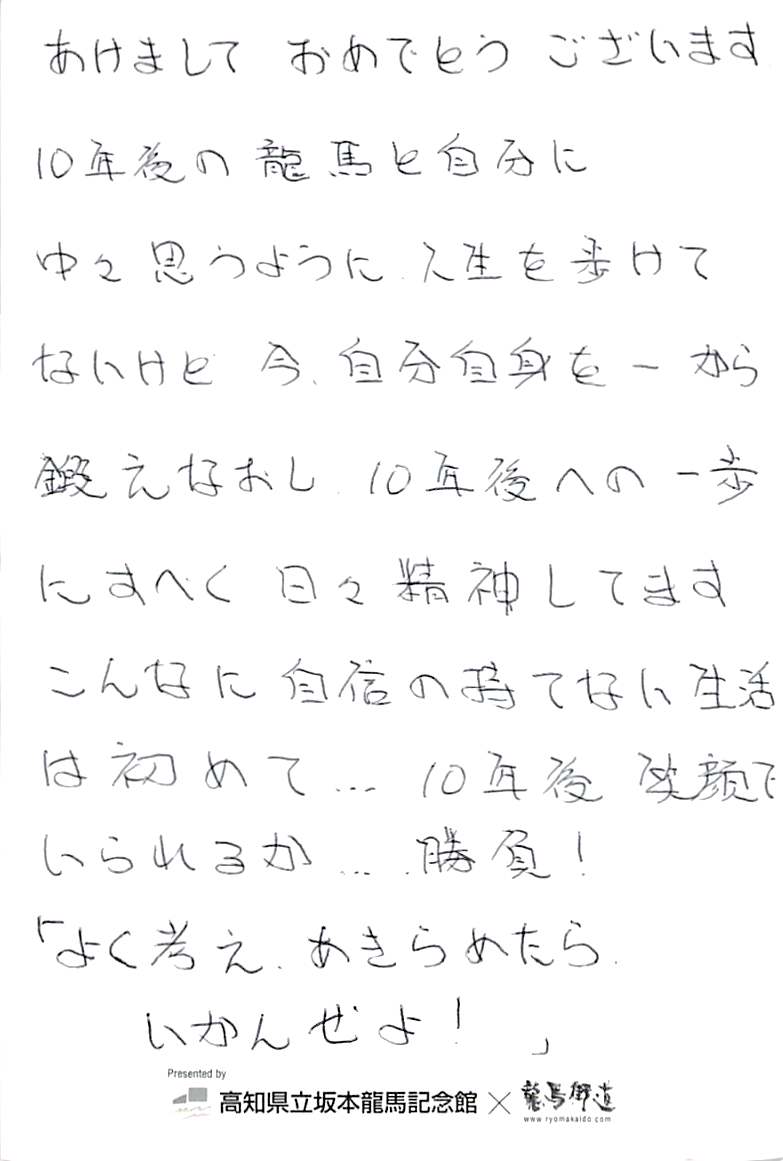 あけまして おめでとう ございます
10年後の龍馬と自分に
中々思うように、人生を歩けて
ないけど 今、自分自身を一から
鍛えなおし、10年後への一歩
にすべく 日々精神してます
こんなに自信の持てない生活
は初めて… 10年後 笑顔で
いられるか… 勝負!
「よく考え、あきらめたら、
いかんぜよ! 」
Presented by
高知県立坂本龍馬記念館 × 龍馬街道
www.ryomakaido.com